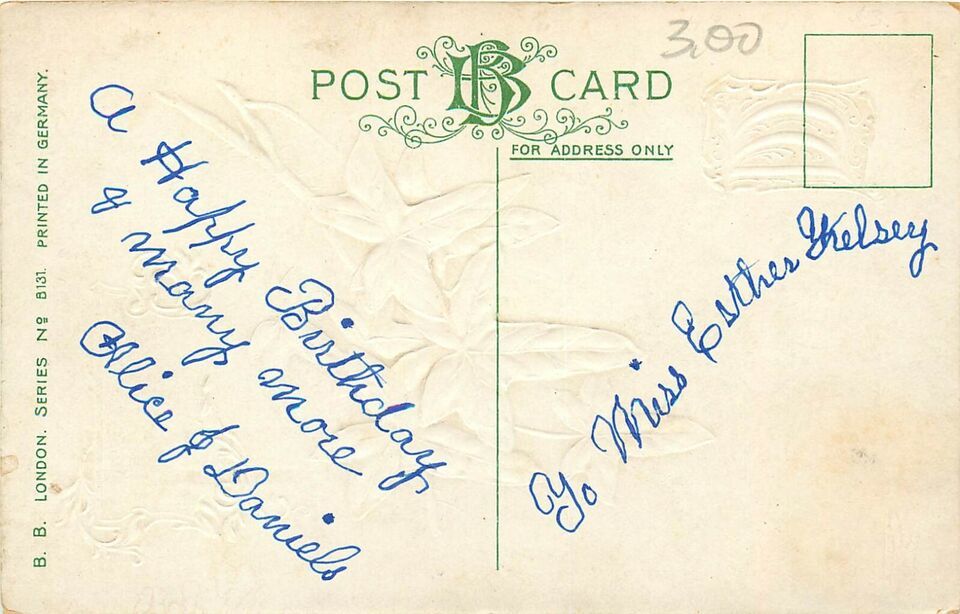 3.00
POST BB CARD
FOR ADDRESS ONLY
B. B. LONDON. SERIES Nº B131. PRINTED IN GERMANY.
A
Happy Birthday
& many more
Alice J Daniels
To Miss Esther Kelsey